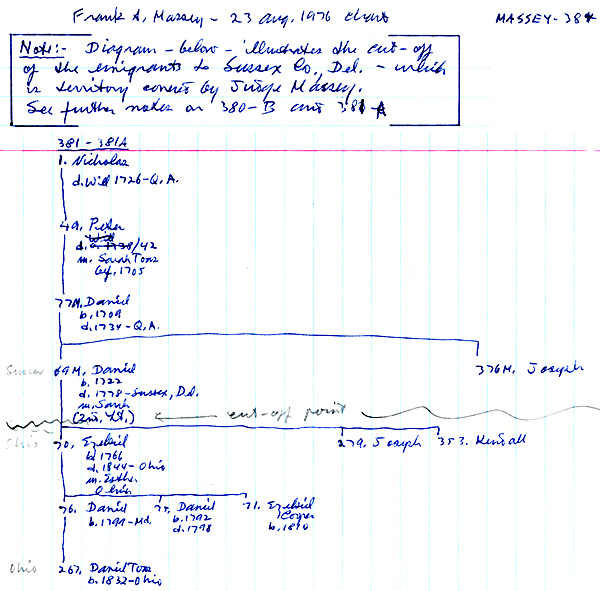 Frank A. Massey - 23 Aug. 1976 chart
MASSEY-38
Note:- Diagram - below - illustrates the cut-off
of the emigrants to Sussex Co., Del. - which
is territory covered by Judge Massey.
See further notes on 380-B and 381-A
381 - 381A
1. Nicholas
d. Will 1726 - Q.A.
49. Peter
d. 1738/42
m. Sarah Toas
by, 1705
77M. Daniel
b. 1709
d. 1734 - Q.A.
Sussex 69M. Daniel
b. 1722
d. 1778 - Sussex, Del.
m. Sarah
376M. Joseph
cut-off point
Ohio 70. Ezekiel
b. 1766
d. 1844 - Ohio
m. Esther
Ohio
279. Joseph
353. Kendall
76. Daniel
b. 1799 - Md.
75. Daniel
b. 1792
d. 1798
71. Ezekiel
Cooper
b. 1810
Ohio 267. Daniel Toas
b. 1832 - Ohio